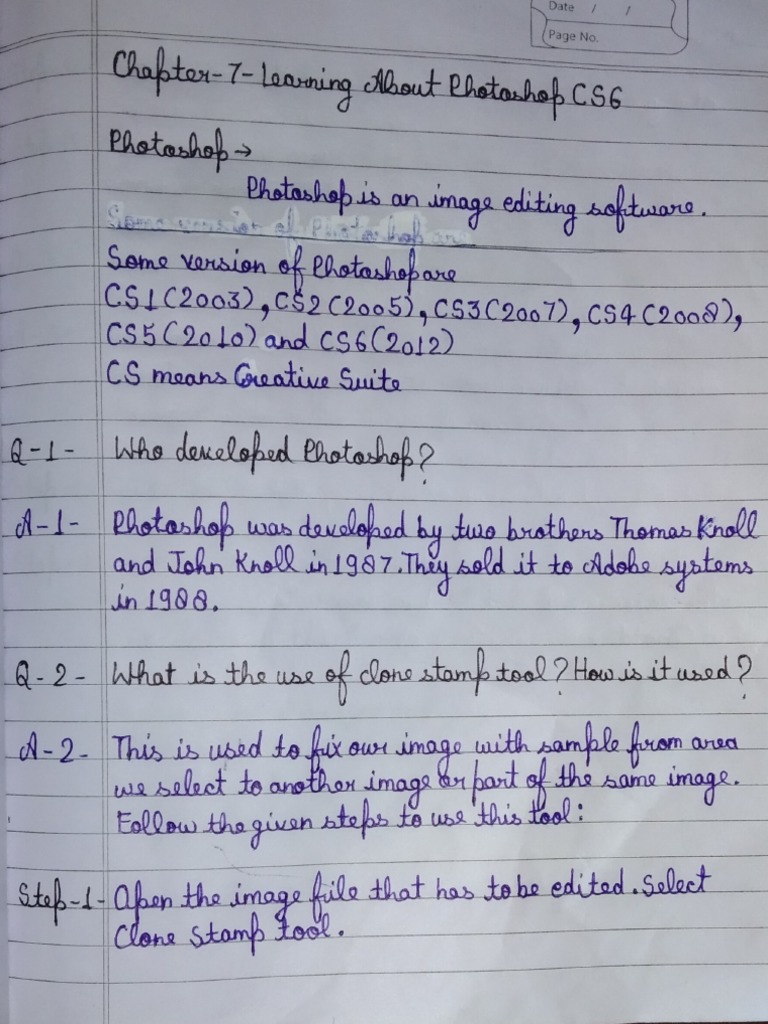 Date / /
Page No.
Chapter-7-Learning About Photoshop CS6
Photoshop →
Photoshop is an image editing software.
Some version of Photoshop are
Some version of Photoshop are
CS1(2003), CS2(2005), CS3(2007), CS4(2008),
CS5(2010) and CS6(2012)
CS means Creative Suite
Q-1- Who developed Photoshop?
A-1- Photoshop was developed by two brothers Thomas Knoll
and John Knoll in 1987. They sold it to Adobe systems
in 1988.
Q-2- What is the use of clone stamp tool? How is it used?
A-2- This is used to fix our image with sample from area
we select to another image or part of the same image.
Follow the given steps to use this tool:
Step-1- Open the image file that has to be edited. Select
Clone Stamp tool.